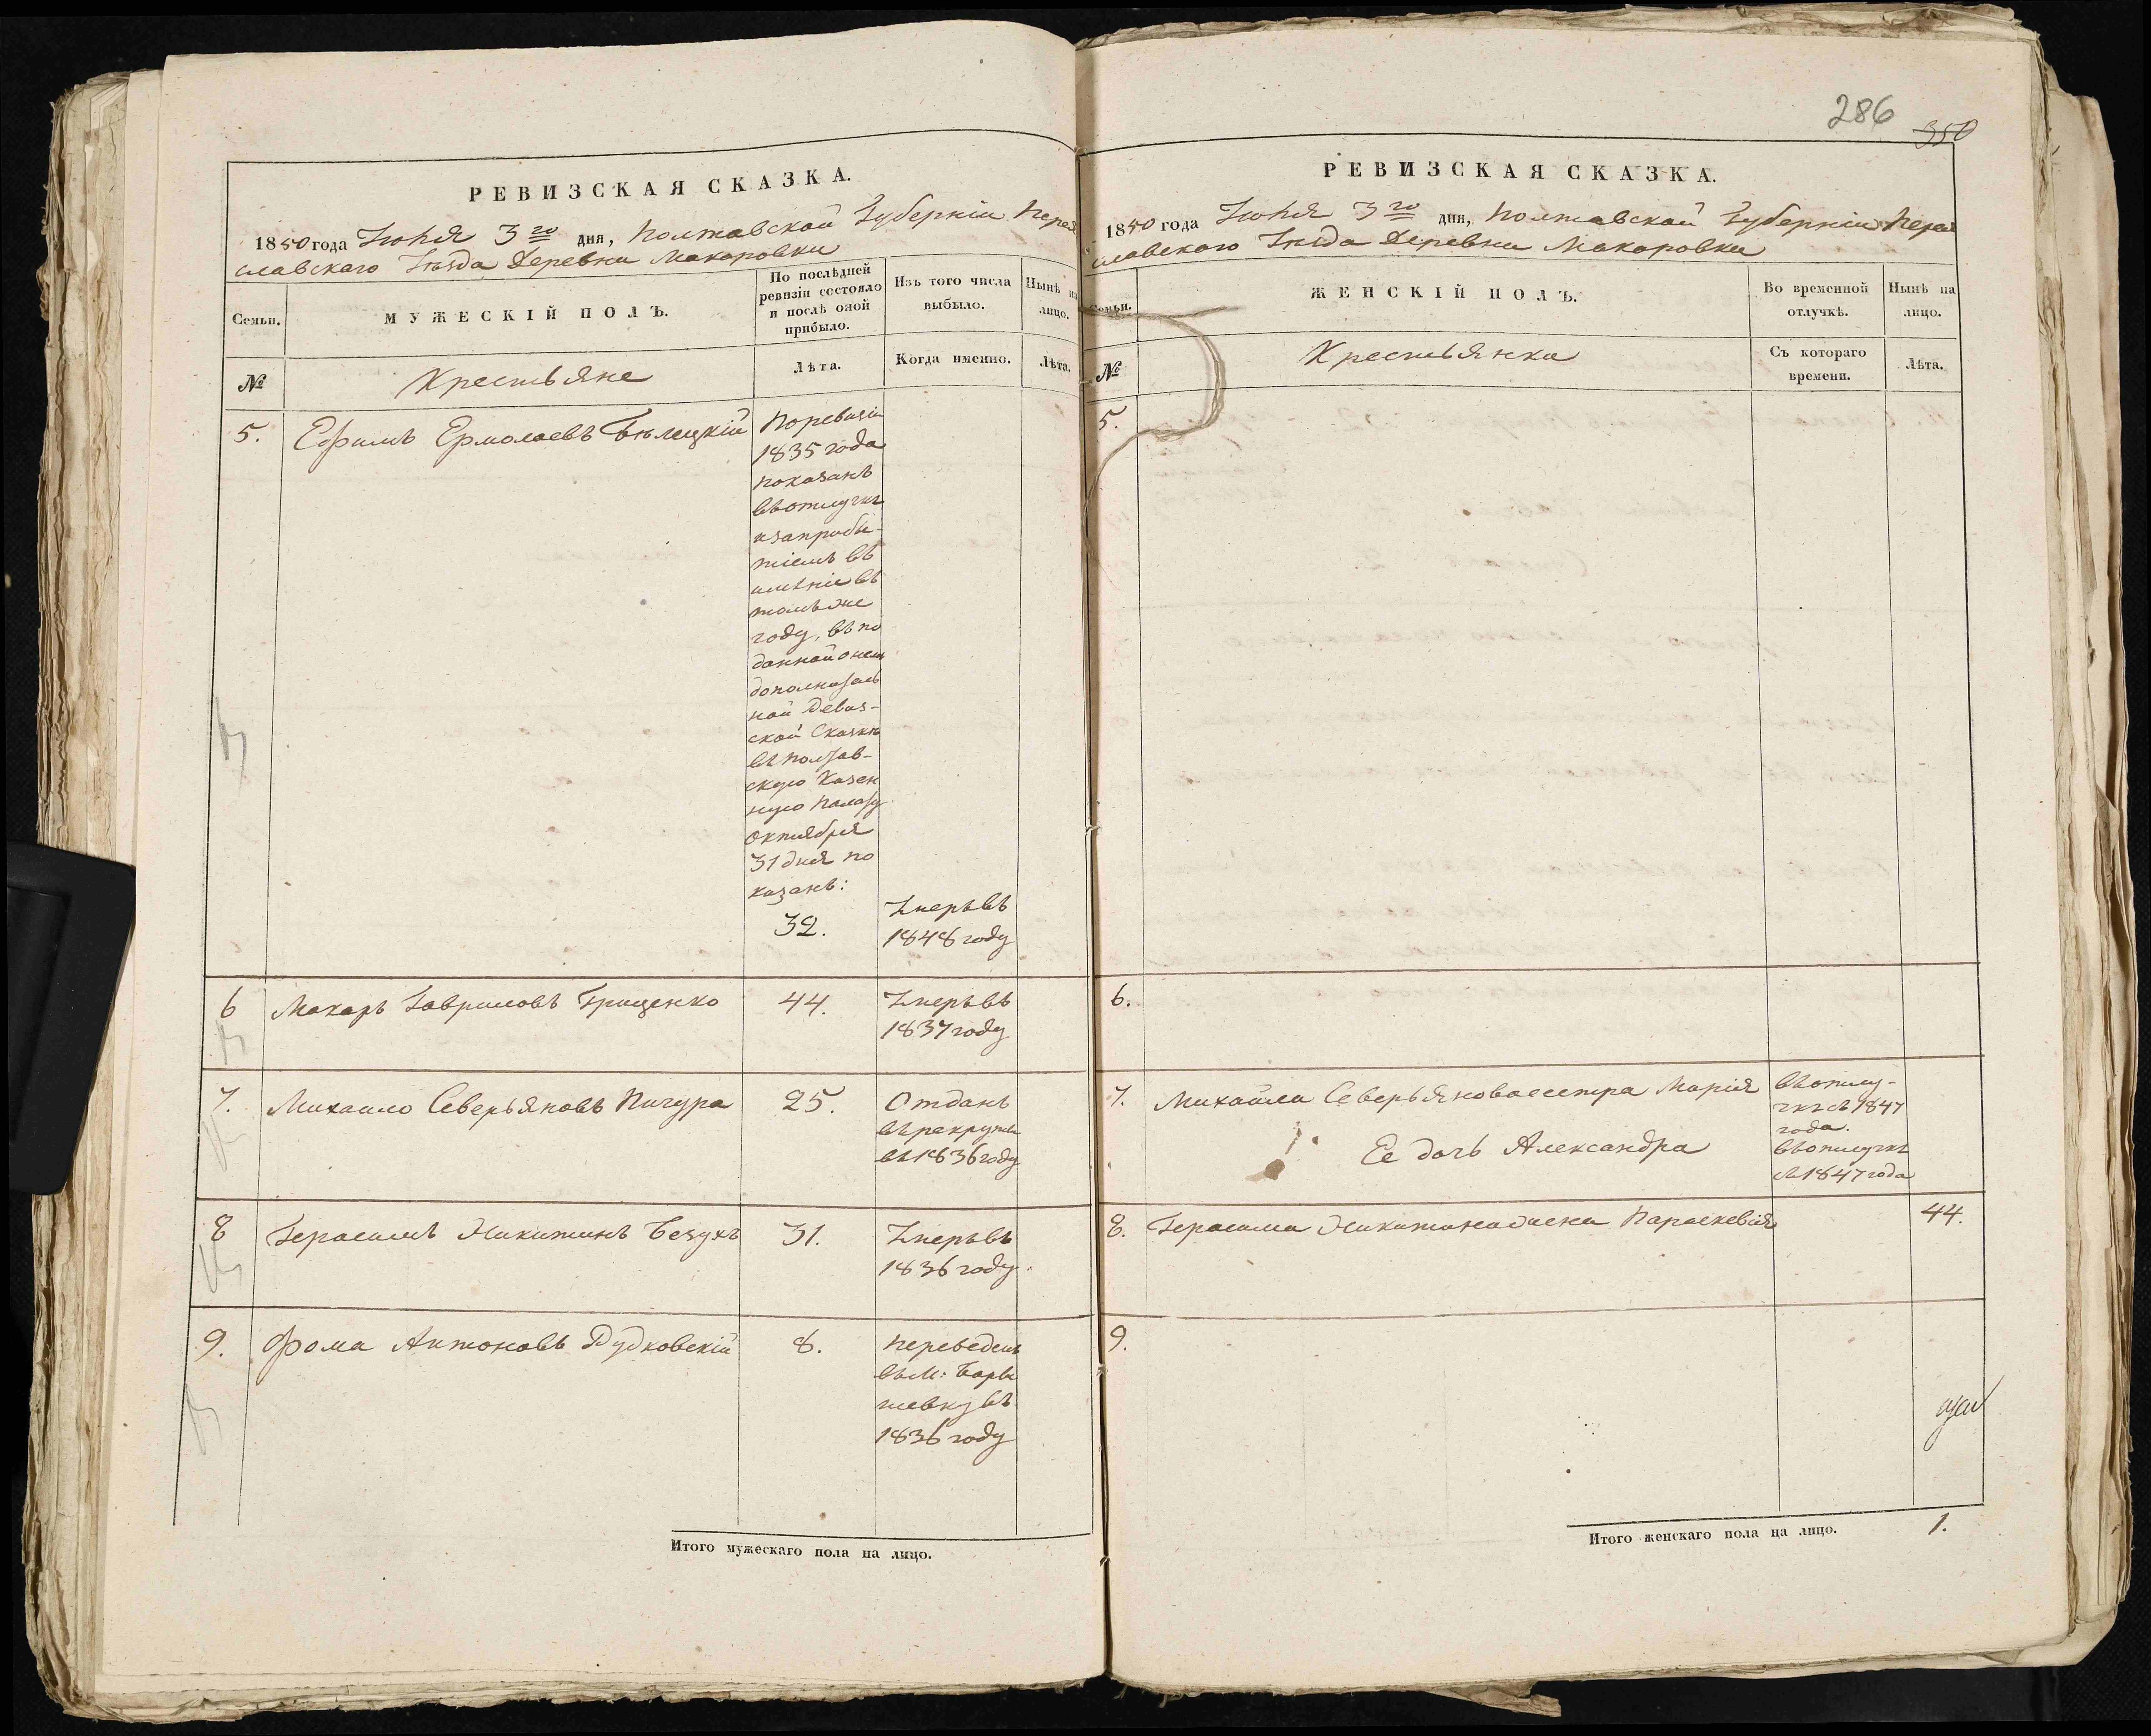 РЕВИЗСКАЯ СКАЗКА.
1850 года Іюня 3го дня, Полтавской Губерніи Перея
славскаго Уѣзда Деревни Макаровки
Семьи.
МУЖЕСКІЙ ПОЛЪ.
По послѣдней
ревизіи состояло
и послѣ оной
прибыло.
Изъ того числа
выбыло.
Нынѣ на
лицо.
№
Крестьяне
Лѣта.
Когда именно.
Лѣта.
5.
Ефимъ Ермолаевъ Бѣлецкій
Поревизіи
1835 года
показанъ
въотлучкѣ
изаприбы-
тіемъ въ
имѣніе въ
томъже
году, въ по
данной онем
дополнитель
ной Ревиз-
ской Сказкѣ
въ Полтав-
скую Казен
ную Палату
Октября
31 дня по
казанъ:
32.
Умеръ въ
1848 году
6
Макаръ Гавриловъ Грищенко
44.
Умеръ въ
1837 году
7.
Михаило Северьяновъ Пичура
25.
Отданъ
въ рекруты
въ 1836 году
8
Герасимъ Никитинъ Безухъ
31.
Умеръ въ
1836 году.
9.
Фома Антоновъ Дудковскій
8.
Переведенъ
въ М: Бары
шевку въ
1836 году
Итого мужескаго пола на лицо.
286
350
РЕВИЗСКАЯ СКАЗКА.
1850 года Іюня 3го дня, Полтавской Губерніи Перея
славскаго Уѣзда Деревни Макаровки
Семьи.
ЖЕНСКІЙ ПОЛЪ.
Во временной
отлучкѣ.
Нынѣ на
лицо.
№
Крестьянки
Съ котораго
времени.
Лѣта.
5.
6.
7.
Михайла Северьянова сестра Марія
въотлу-
чкѣ съ 1847
года.
Ее дочь Александра
въотлучкѣ
съ 1847 года
8.
Герасима Никитина жена Параскевія
44.
9.
Итого женскаго пола на лицо.
1.